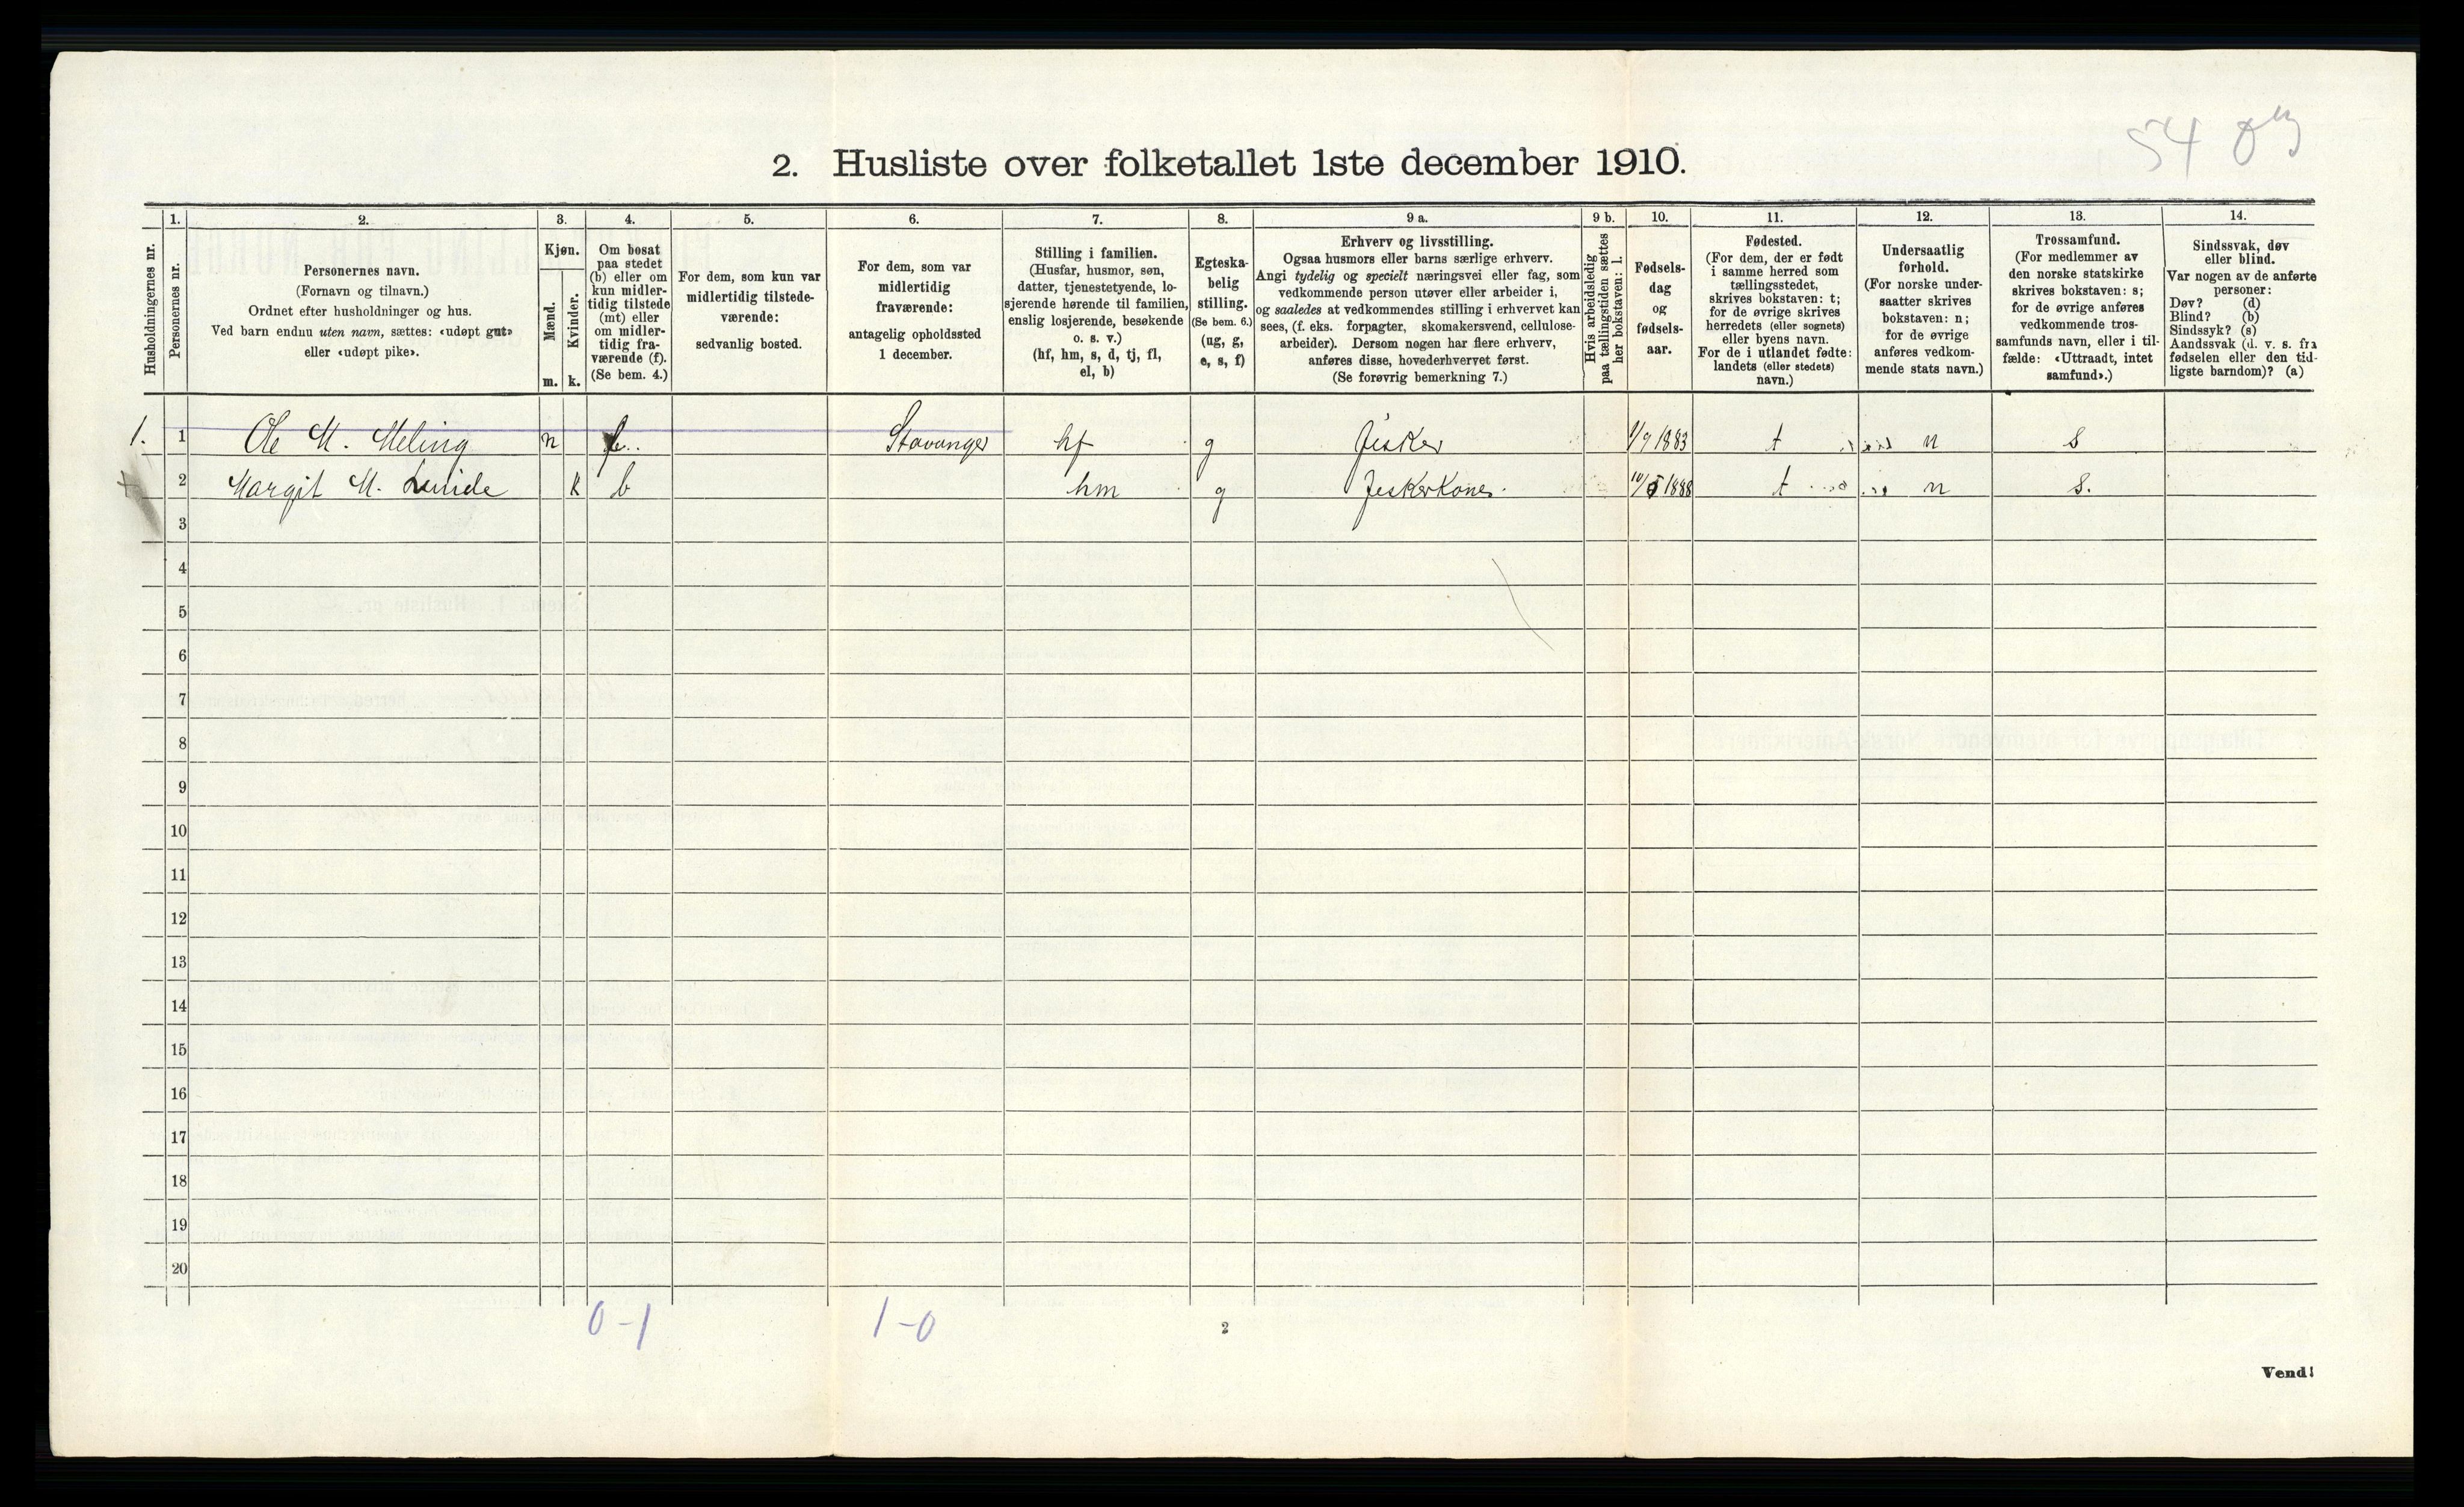 54
2. Husliste over folketallet 1ste december 1910.
1. 2. 3. 4. 5. 6. 7. 8. 9 a. 9 b. 10. 11. 12. 13. 14.
Husholdningernes nr.
Personernes nr.
Personernes navn.
(Fornavn og tilnavn.)
Ordnet efter husholdninger og hus.
Ved barn endnu uten navn, sættes: «udøpt gut»
eller «udøpt pike».
Kjøn.
Mænd.
Kvinder.
m. k.
Om bosat
paa stedet
(b) eller om
kun midler-
tidig tilstede
(mt) eller
om midler-
tidig fra-
værende (f).
(Se bem. 4.)
For dem, som kun var
midlertidig tilstede-
værende:
sedvanlig bosted.
For dem, som var
midlertidig
fraværende:
antagelig opholdssted
1 december.
Stilling i familien.
(Husfar, husmor, søn,
datter, tjenestetyende, lo-
sjerende hørende til familien,
enslig losjerende, besøkende
o. s. v.)
(hf, hm, s, d, tj, fl,
el, b)
Egteska-
belig
stilling.
(Se bem. 6.)
(ug, g,
e, s, f)
Erhverv og livsstilling.
Ogsaa husmors eller barns særlige erhverv.
Angi tydelig og specielt næringsvei eller fag, som
vedkommende person utøver eller arbeider i,
og saaledes at vedkommendes stilling i erhvervet kan
sees, (f. eks. forpagter, skomakersvend, cellulose-
arbeider). Dersom nogen har flere erhverv,
anføres disse, hovederhvervet først.
(Se forøvrig bemerkning 7.)
Hvis arbeidsledig
paa tællingstiden sættes
her bokstaven: l.
Fødsels-
dag
og
fødsels-
aar.
Fødested.
(For dem, der er født
i samme herred som
tællingsstedet,
skrives bokstaven: t;
for de øvrige skrives
herredets (eller sognets)
eller byens navn.
For de i utlandet fødte:
landets (eller stedets)
navn.)
Undersaatlig
forhold.
(For norske under-
saatter skrives
bokstaven: n;
for de øvrige
anføres vedkom-
mende stats navn.)
Trossamfund.
(For medlemmer av
den norske statskirke
skrives bokstaven: s;
for de øvrige anføres
vedkommende tros-
samfunds navn, eller i til-
fælde: «Uttraadt, intet
samfund».)
Sindssvak, døv
eller blind.
Var nogen av de anførte
personer:
Døv? (d)
Blind? (b)
Sindssyk? (s)
Aandssvak (d. v. s. fra
fødselen eller den tid-
ligste barndom)? (a)
1. 1 Ole M. Meling m Stavanger hf g fisker 1/9 1883 t n s
2 Margit M. Lunde k b hm g fiskerkone. 1888 t n s.
3
4
5
6
7
8
9
10
11
12
13
14
15
16
17
18
19
20
0-1 1-0
2
Vend!